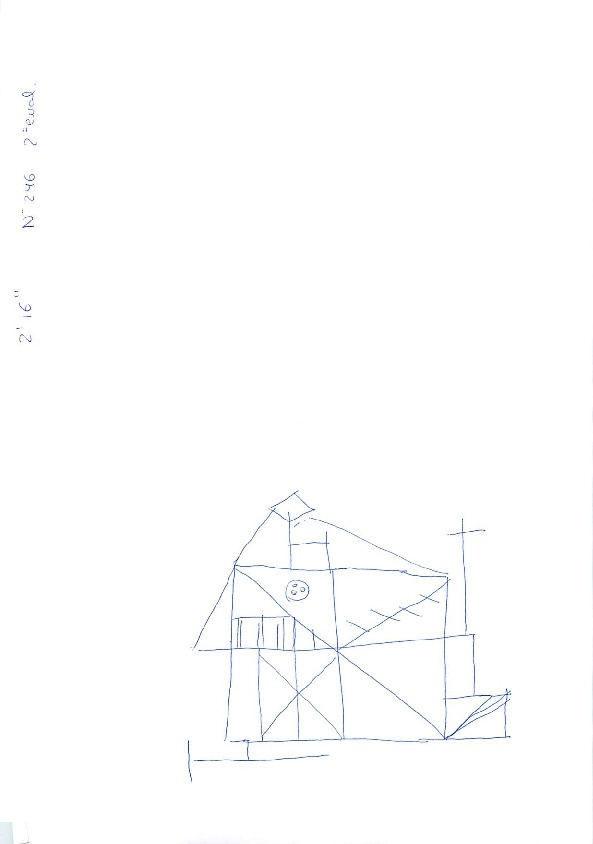 2' 16" N° 246 2ª eval.